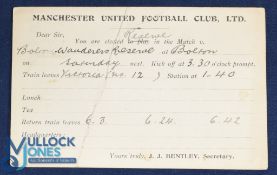 MANCHESTER UNITED FOOTBALL CLUB, LTD.
Dear Sir, Reserve
You are elected to play in the Match v.
Bolton Wanderers Reserve at Bolton
on Saturday next. Kick off at 3.30 o'clock prompt.
Train leaves Victoria (No. 12) Station at 1-40
Lunch
Tea
Return train leaves 6.3. 6-24. 6.42
Headquarters
Yours truly, J. J. BENTLEY, Secretary.
MULLOCK
JONES